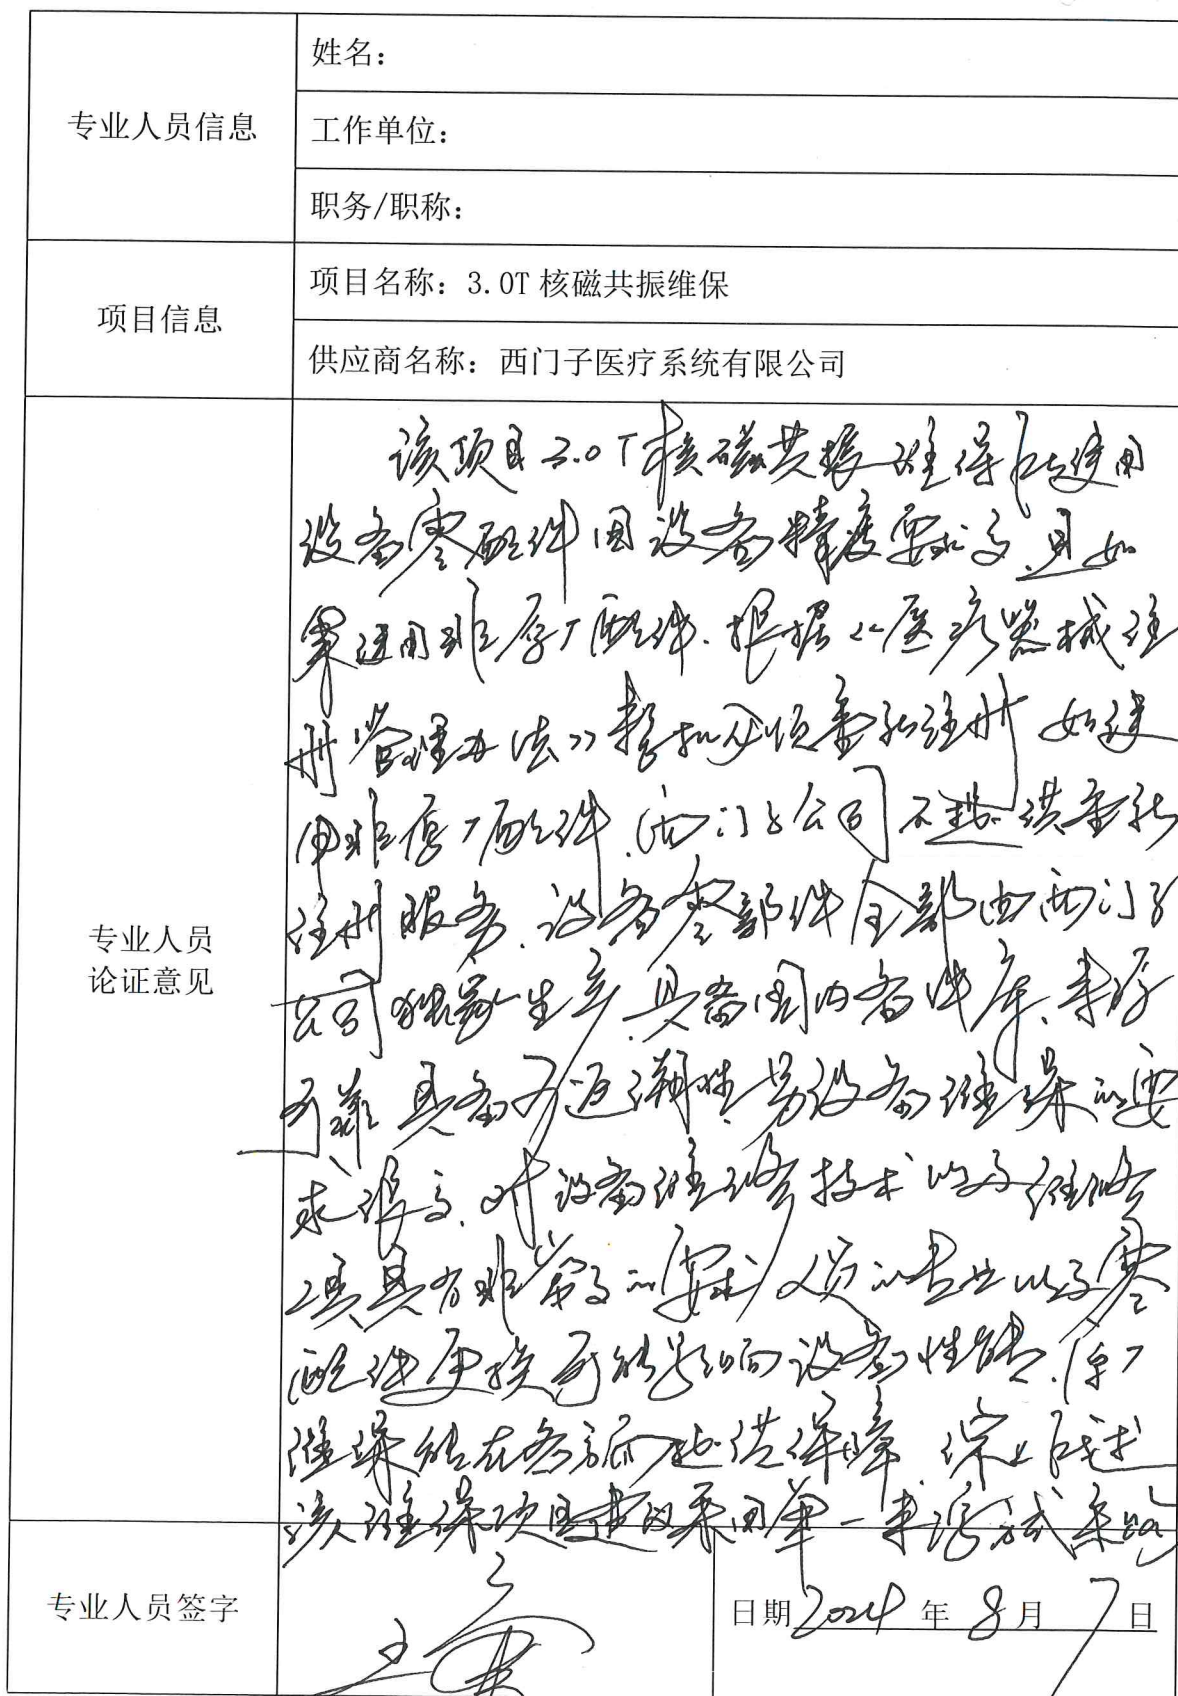 专业人员信息
姓名：
工作单位：
职务/职称：
项目信息
项目名称：3.0T 核磁共振维保
供应商名称：西门子医疗系统有限公司
专业人员
论证意见
该项目3.0T核磁共振维保所使用
设备零配件因设备精度要求高,且如
果使用非原厂配件.根据《医疗器械注
册管理办法》整机必须重新注册 如使
用非原厂配件.西门子公司不提供重新
注册服务.设备零部件全部由西门子
公司独家生产.具备国内备件库、来源
可靠、具备可追溯性.另设备维保的要
求很高.对设备维修技术以及维修
工具具有非常高的要求,人员的专业以及零
配件更换可能影响设备性能.原厂
维保能在各方面提供保障 综上所述
该维保项目建议采用单一来源方式采购
专业人员签字
日期 2024 年 8 月 7 日